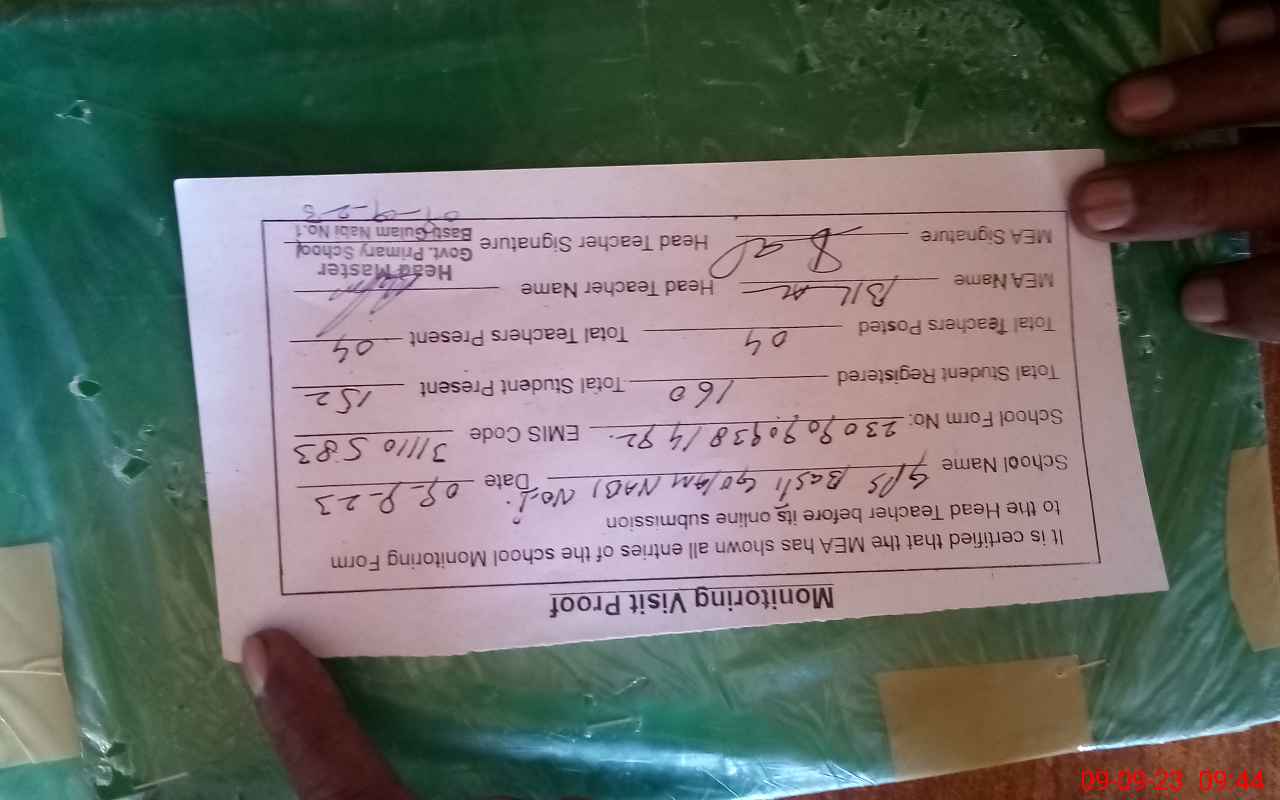 Monitoring Visit Proof
It is certified that the MEA has shown all entries of the school Monitoring Form
to the Head Teacher before its online submission
School Name GPS Basti Golam NABI No.1 Date 09-9-23
School Form No: EMIS Code 31110583
Total Student Registered 160 Total Student Present 152
Total Teachers Posted 04 Total Teachers Present 04
MEA Name Head Teacher Name
MEA Signature Head Teacher Signature
Head Master
Govt. Primary School
Basti Gulam Nabi No.1
09-09-23 09:44